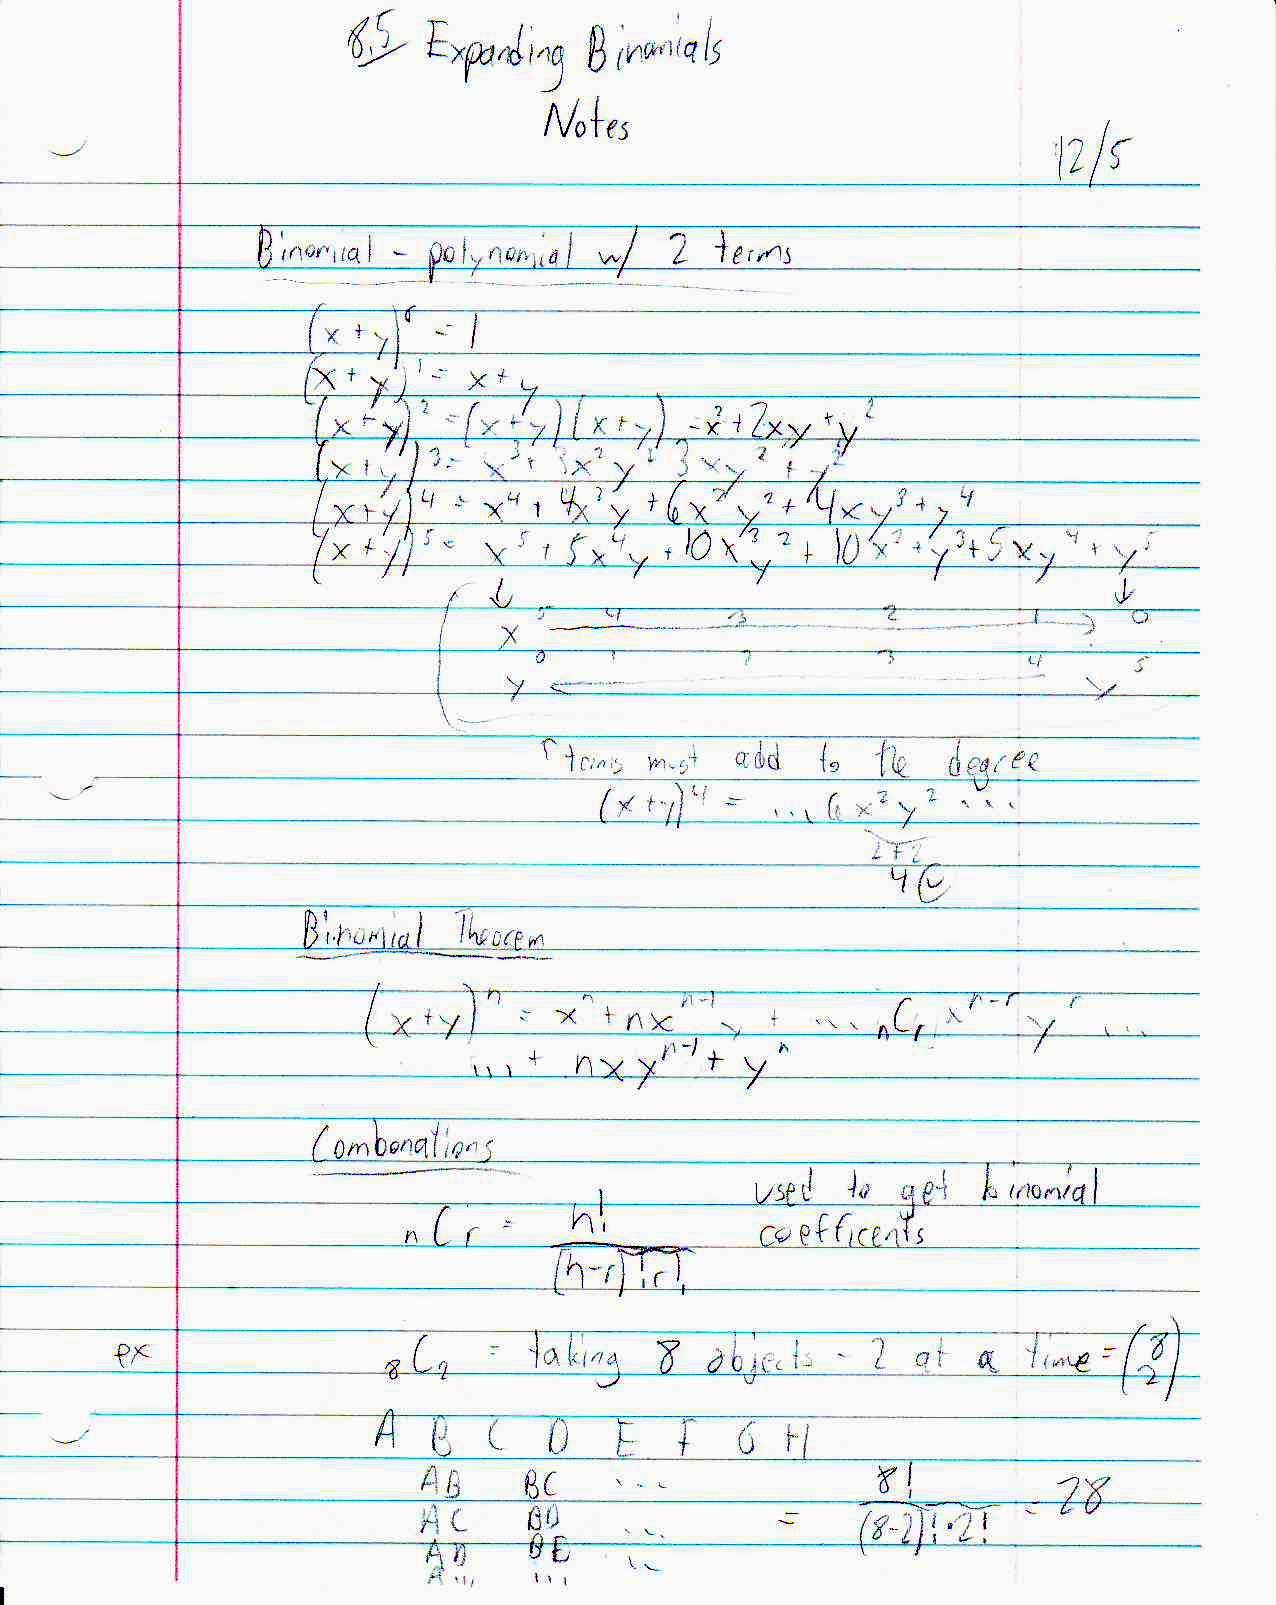 8.5 Expanding Binomials
Notes
12/5
Binomial - polynomial w/ 2 terms
(x+y)⁰ = 1
(x+y)¹ = x+y
(x+y)² = (x+y)(x+y) = x²+2xy+y²
(x+y)³ = x³+3x²y+3xy²+y³
(x+y)⁴ = x⁴+4x³y+6x²y²+4xy³+y⁴
(x+y)⁵ = x⁵+5x⁴y+10x³y²+10x²+y³+5xy⁴+y⁵
↓ ↓
x 5 4 3 2 1 → 0
y 0 1 2 3 4 5
terms must add to the degree
(x+y)⁴ = ...6x²y²...
2+2
4
Binomial Theorem
(x+y)ⁿ = xⁿ+nxⁿ⁻¹y + ... nCr xⁿ⁻ʳ yʳ ...
... + nxyⁿ⁻¹ + yⁿ
Combonations
nCr = n! / (n-r)!r!
used to get binomial
coefficents
ex 8C2 = taking 8 objects - 2 at a time = (8 2)
A B C D E F G H
AB BC ...
AC BD ...
AD BE ...
A... ...
= 8! / (8-2)!·2! = 28